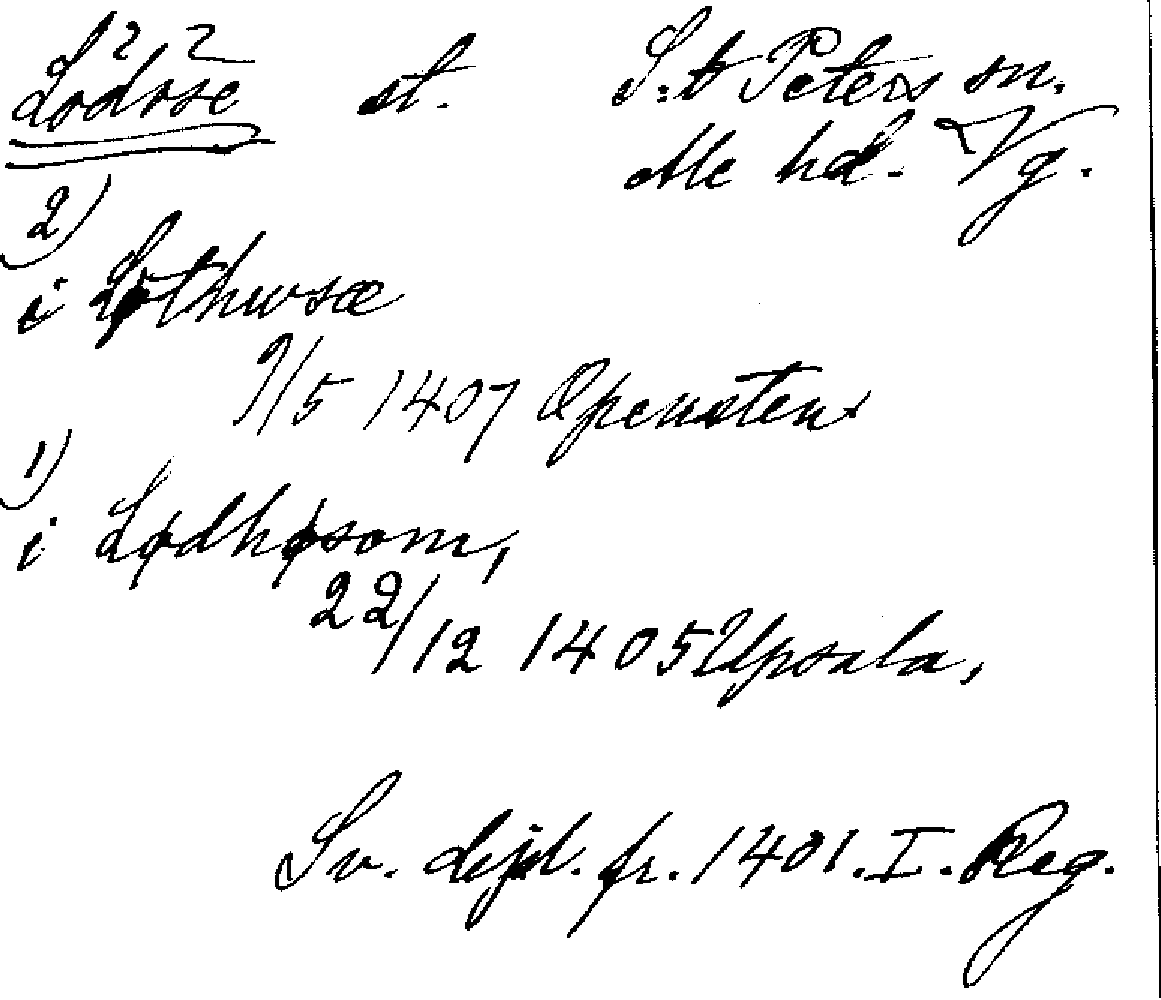 Lödöse st. S:t Peters sn.
Ale hd. Vg.
2)
i Løthusæ
9/5 1407 Opensten
1)
i Lødhøsom,
22/12 1405 Upsala,
Sv. dipl. fr. 1401. I. Reg.